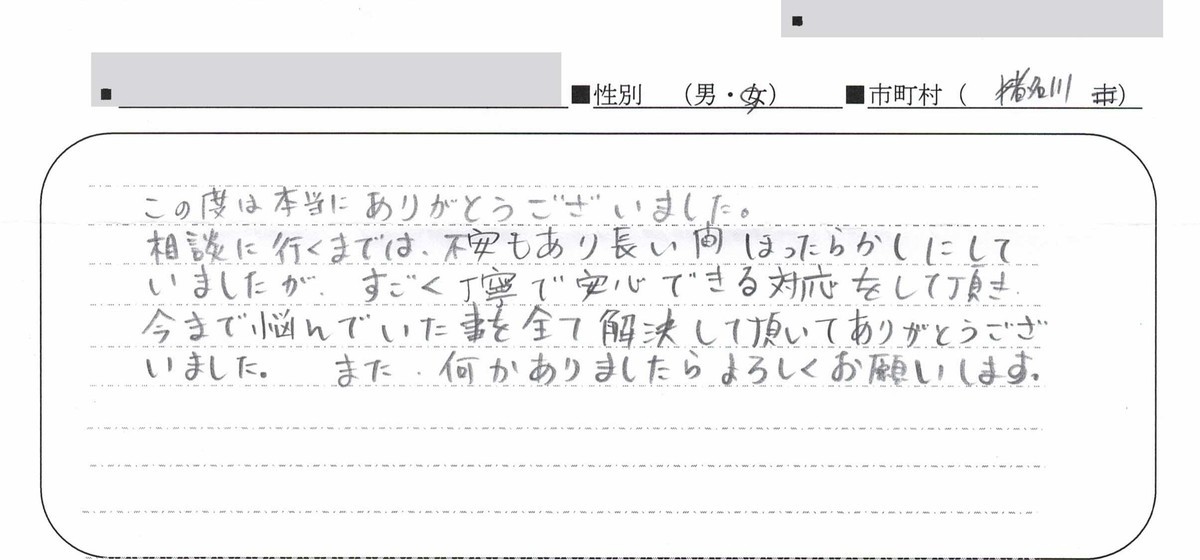 ■性別 （男・女） ■市町村（ 猪名川 市）
この度は本当にありがとうございました。
相談に行くまでは、不安もあり長い間ほったらかしにして
いましたが、すごく丁寧で安心できる対応をして頂き、
今まで悩んでいた事を全て解決して頂いてありがとうござ
いました。 また、何かありましたらよろしくお願いします。